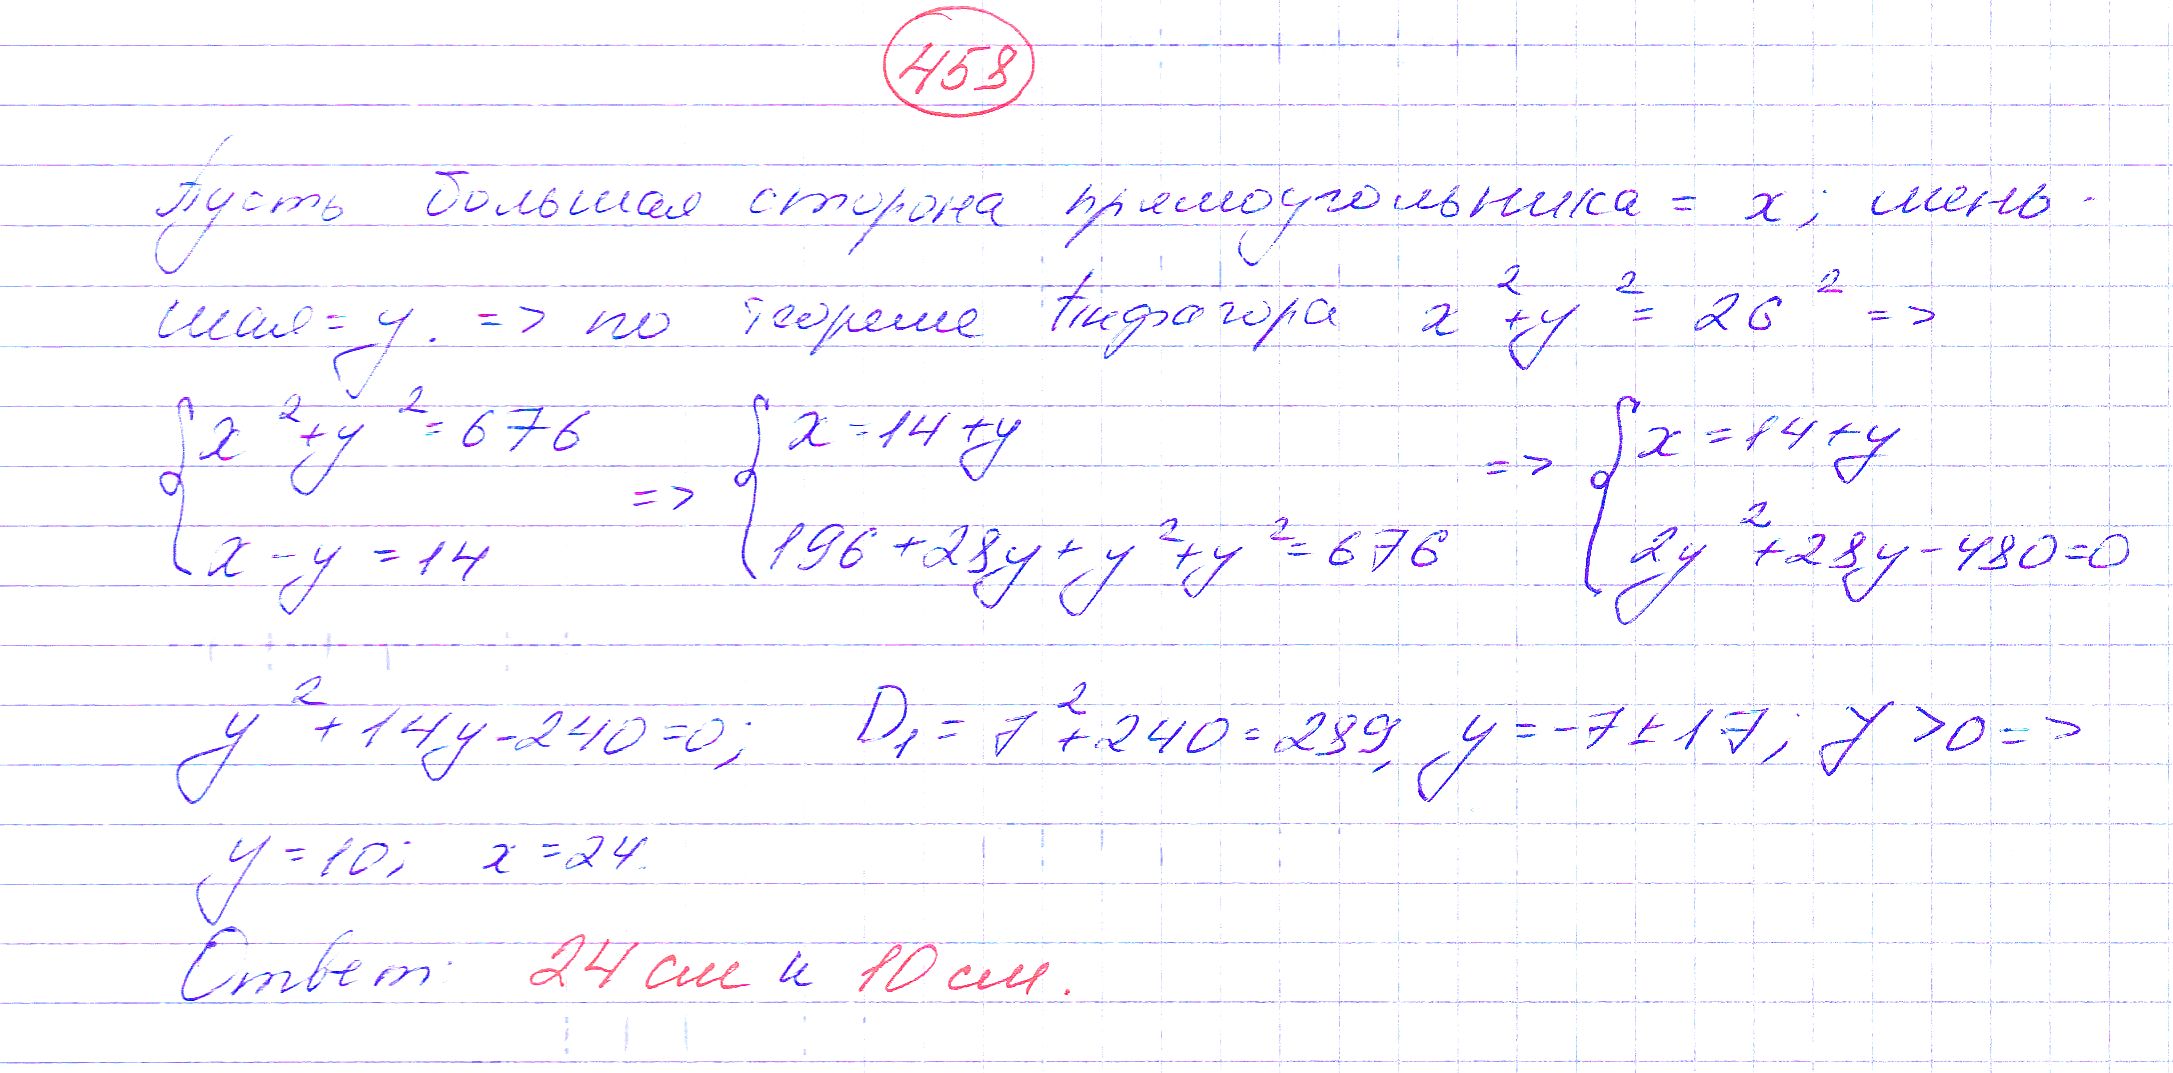 458
Пусть большая сторона прямоугольника = x; мень-
шая = y. => по теореме Пифагора x² + y² = 26² =>
{ x² + y² = 676 => { x = 14 + y => { x = 14 + y
x - y = 14 196 + 28y + y² + y² = 676 2y² + 28y - 480 = 0
y² + 14y - 240 = 0; D₁ = 7² + 240 = 289, y = -7 ± 17; y > 0 =>
y = 10; x = 24.
Ответ: 24 см и 10 см.